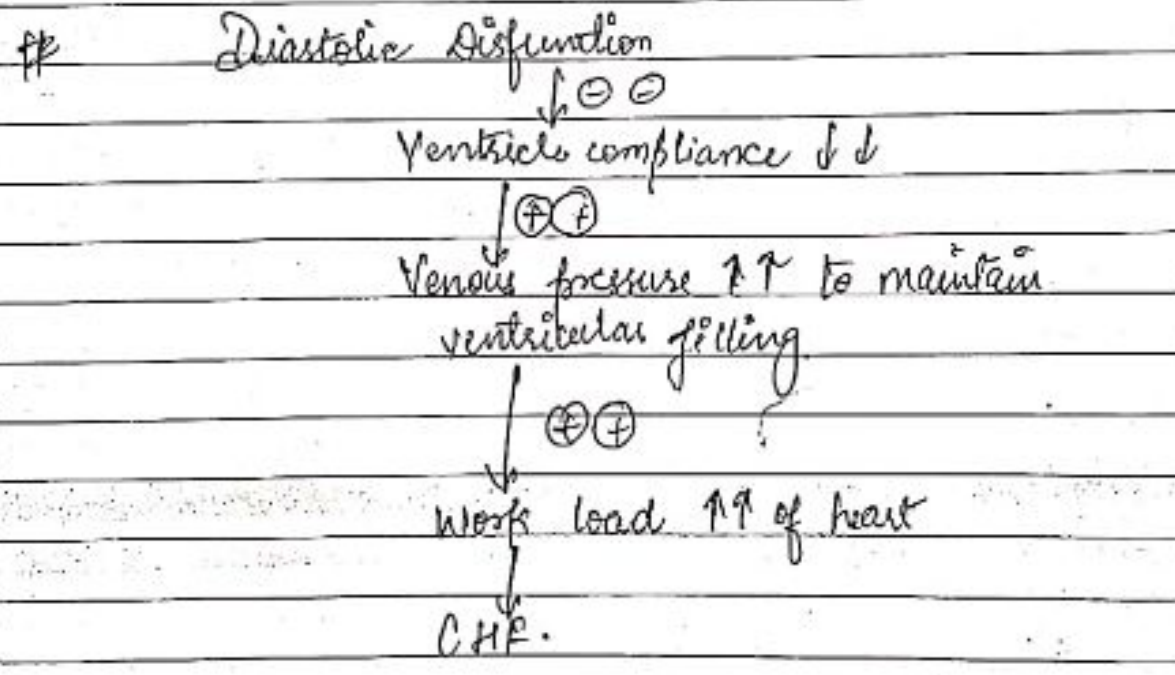 # Diastolic Disfunction
↓ ⊖ ⊖
Ventricle compliance ↓ ↓
↓ ⊕ ⊕
Venous pressure ↑ ↑ to maintain
ventricular filling
↓ ⊕ ⊕
Work load ↑↑ of heart
↓
CHF.